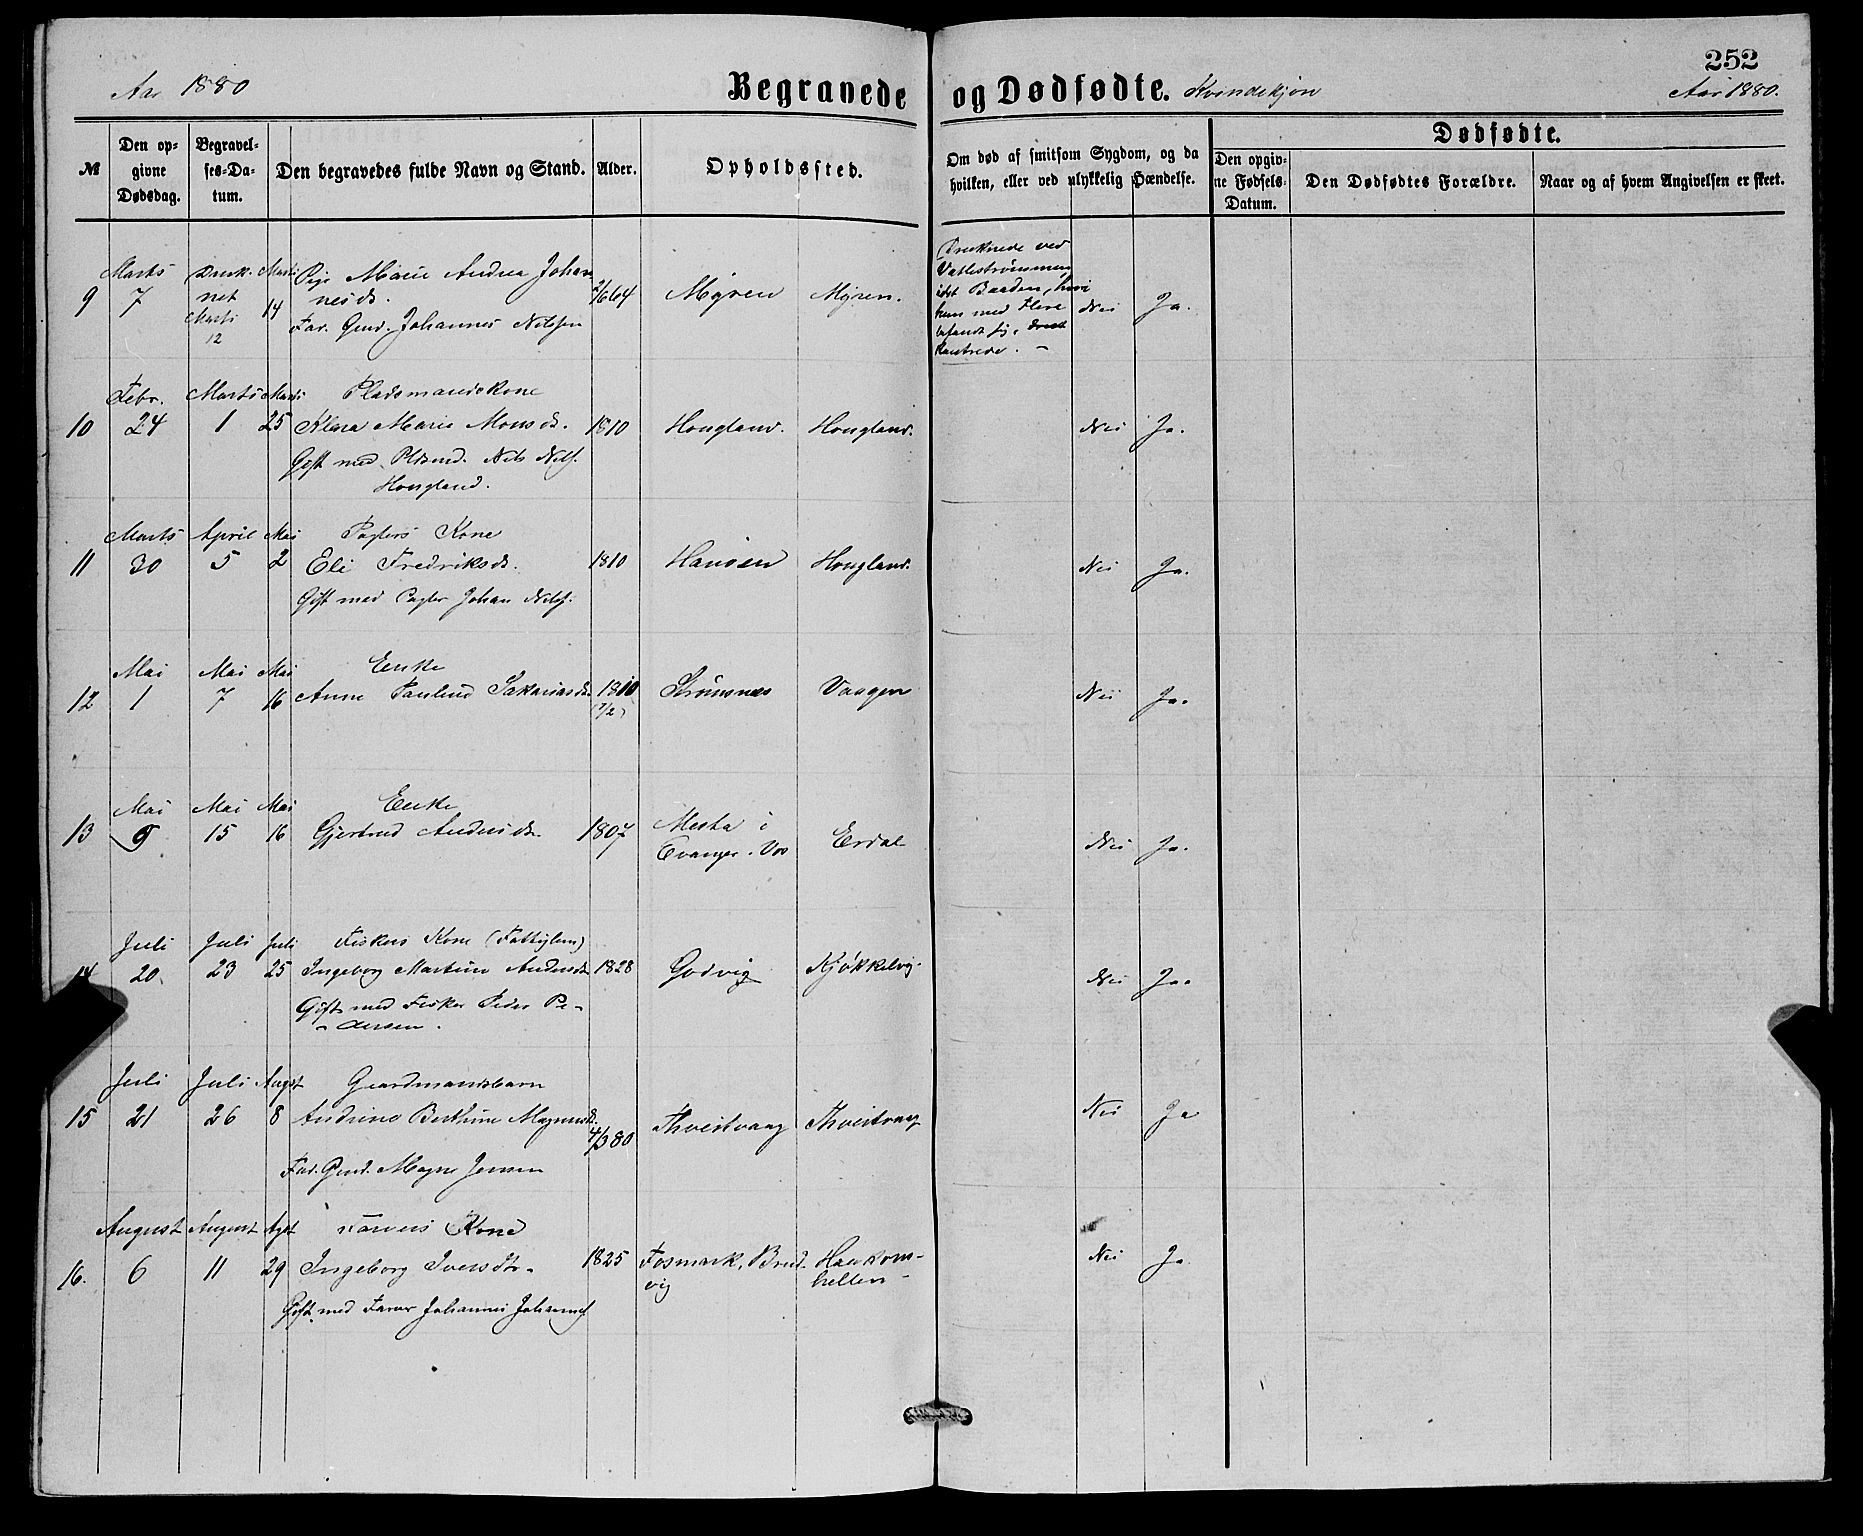 Aar 1880
Begravede og Dødfødte. Kvindekjøn
252
Aar 1880.
№
Den opgivne Dødsdag.
Begravelses-Datum.
Den begravedes fulde Navn og Stand.
Alder.
Opholdssted.
Om død af smitsom Sygdom, og da hvilken, eller ved ulykkelig Hændelse.
Dødfødte.
Den opgivne Fødsels-Datum.
Den Dødfødtes Forældre.
Naar og af hvem Angivelsen er skeet.
9
Marts 7
net Marts 12
Marts 14
Pige Marie Andrea Johannesdr.
Far. Gmd. Johannes Nilsen
2/6 64
Myren
Myren.
Druknede ved
Vatlestrømmen,
idet Baaden, hvori
hun med Flere
befandt sig,
kantrede. –
Nei
Ja.
10
Febr. 24
Marts 1
Marts 25
Pladsmandskone
Klara Marie Monsdr.
Gift med Pldsmd. Nils Nils.
Hougland.
1810
Hougland.
Hougland.
Nei
Ja.
11
Marts 30
April 5
Mai 2
Kone
Eli Fredriksdr.
Gift med Johan Nils.
1810
Hansen
Hougland.
Nei
Ja.
12
Mai 1
Mai 7
Mai 16
Enke
Anne Pauline Sakariasdr.
1810
(7/2)
Strømsnes
Vaagen
Nei
Ja.
13
Mai 9
Mai 15
Mai 16
Enke
Gjertrud Andersdr.
1807
Mesta i
Evanger. Vos
Erdal
Nei
Ja.
14
Juli 20.
Juli 23
Juli 25
Fiskers Kone (Fattiglem)
Ingeborg Martine Andersdr.
Gift med Fisker Peder Pe-
dersen.
1828
Godvig
Kjøkkelvig.
Nei
Ja.
15
Juli 21
Juli 26
Augst 8
Gaardmandsbarn
Andrine Berthine Magnusdr.
Fad. Gmd. Magne Jensen
4/3 80
Thveitvaag
Thveitvaag
Nei
Ja
16.
August 6
August 11
Agst 29
Farvers Kone
Ingeborg Iversdtr.
Gift med Farver Johannes Johannes.
1825
Fosmark, Brudvig
Haakonshellen
Nei
Ja